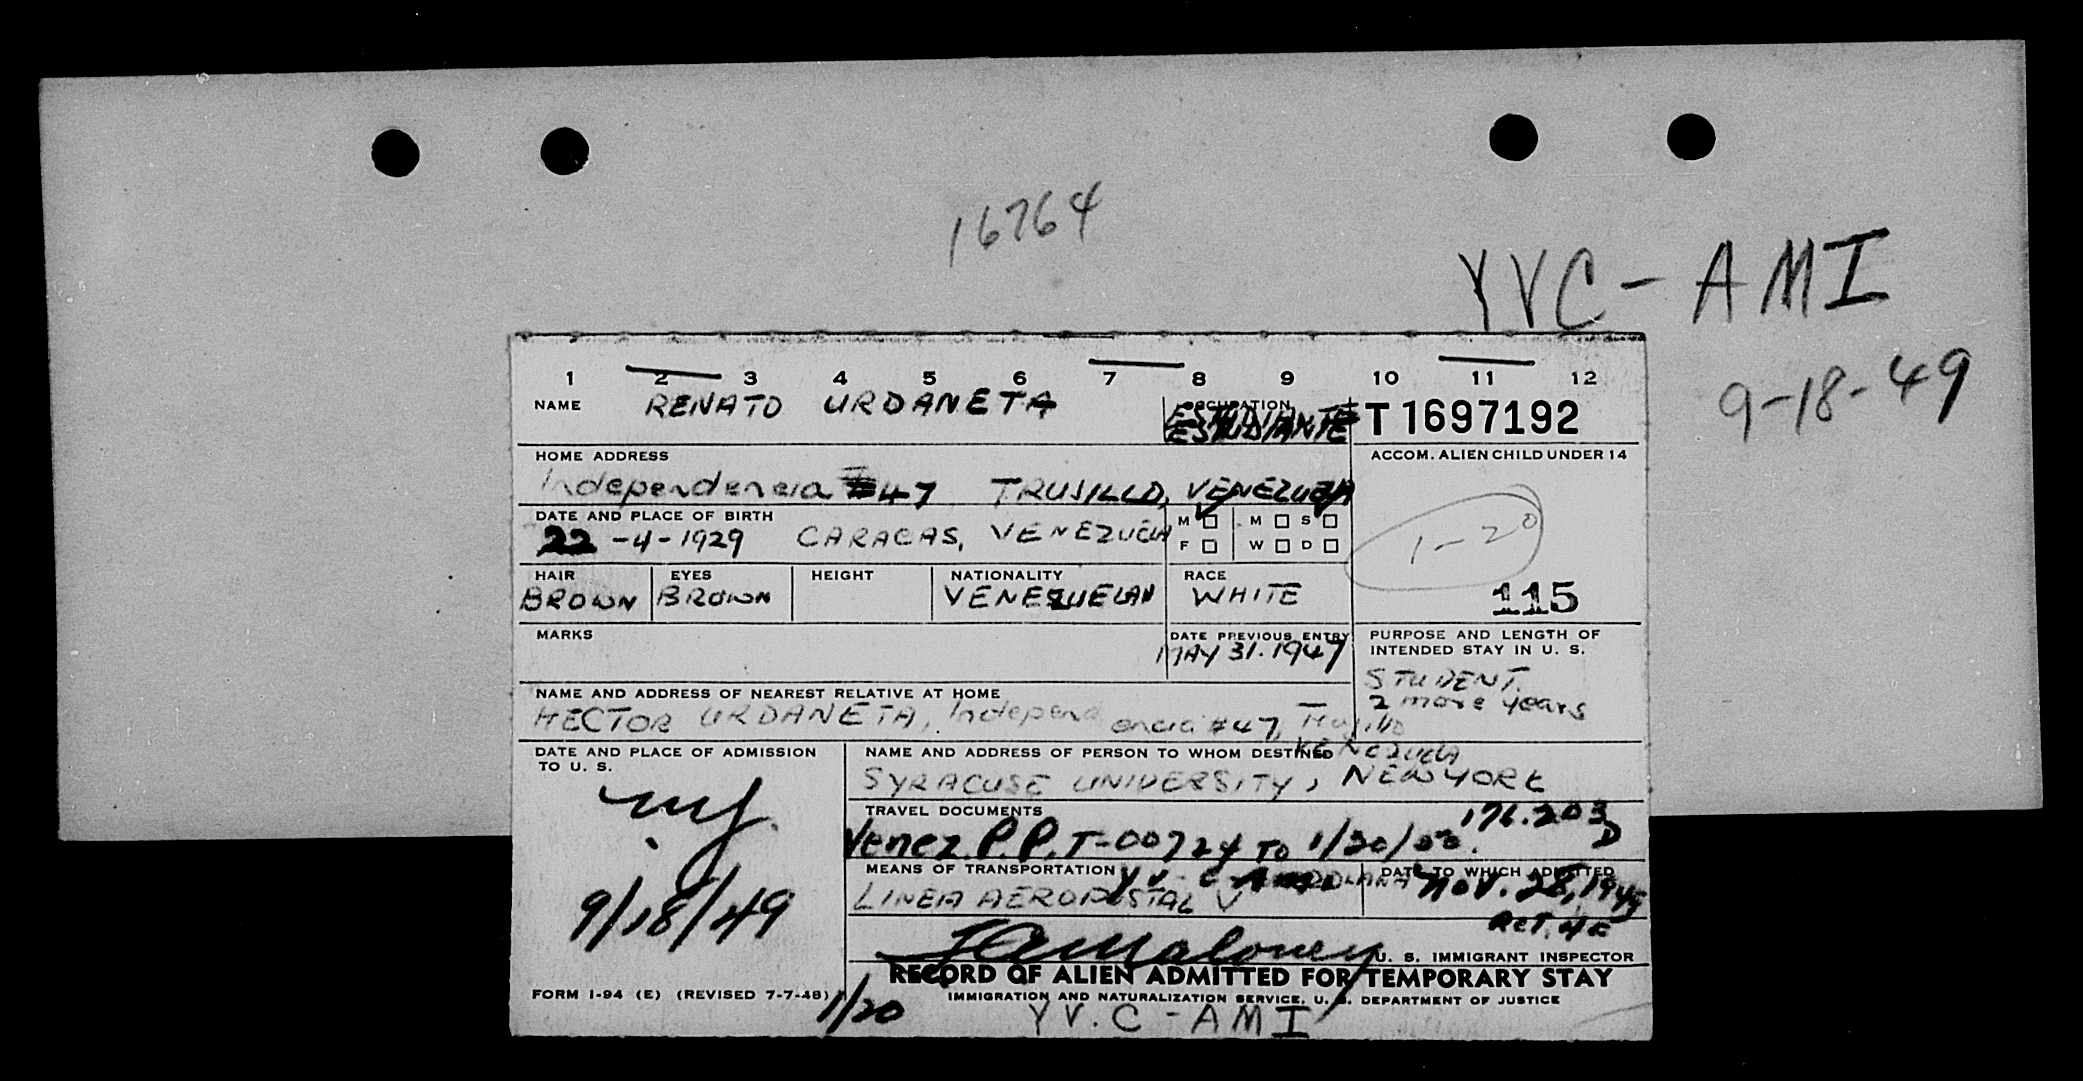 16764
YVC-AMI
9-18-49
1 2 3 4 5 6 7 8 9 10 11 12
NAME RENATO URDANETA OCCUPATION ESTUDIANTE T 1697192
HOME ADDRESS ACCOM. ALIEN CHILD UNDER 14
Independencia #47 TRUJILLO, VENEZUELA
DATE AND PLACE OF BIRTH M M S
22-4-1929 CARACAS, VENEZUELA F W D
1-20
HAIR EYES HEIGHT NATIONALITY RACE
BROWN BROWN VENEZUELAN WHITE 115
MARKS DATE PREVIOUS ENTRY PURPOSE AND LENGTH OF
INTENDED STAY IN U. S.
MAY 31. 1947 STUDENT.
2 more years
NAME AND ADDRESS OF NEAREST RELATIVE AT HOME
HECTOR URDANETA, Independencia #47, Trujillo
VENEZUELA
DATE AND PLACE OF ADMISSION NAME AND ADDRESS OF PERSON TO WHOM DESTINED
TO U. S.
SYRACUSE UNIVERSITY, NEW YORK
TRAVEL DOCUMENTS 176.203
D
Venez. P.P. T-00724 TO
MEANS OF TRANSPORTATION DATE TO WHICH ADMITTED
LINEA AEROPOSTAL V Nov. 28, 1949
9/18/49
U. S. IMMIGRANT INSPECTOR
RECORD OF ALIEN ADMITTED FOR TEMPORARY STAY
FORM I-94 (E) (REVISED 7-7-48) IMMIGRATION AND NATURALIZATION SERVICE, U. S. DEPARTMENT OF JUSTICE
1/20 YV.C-AMI